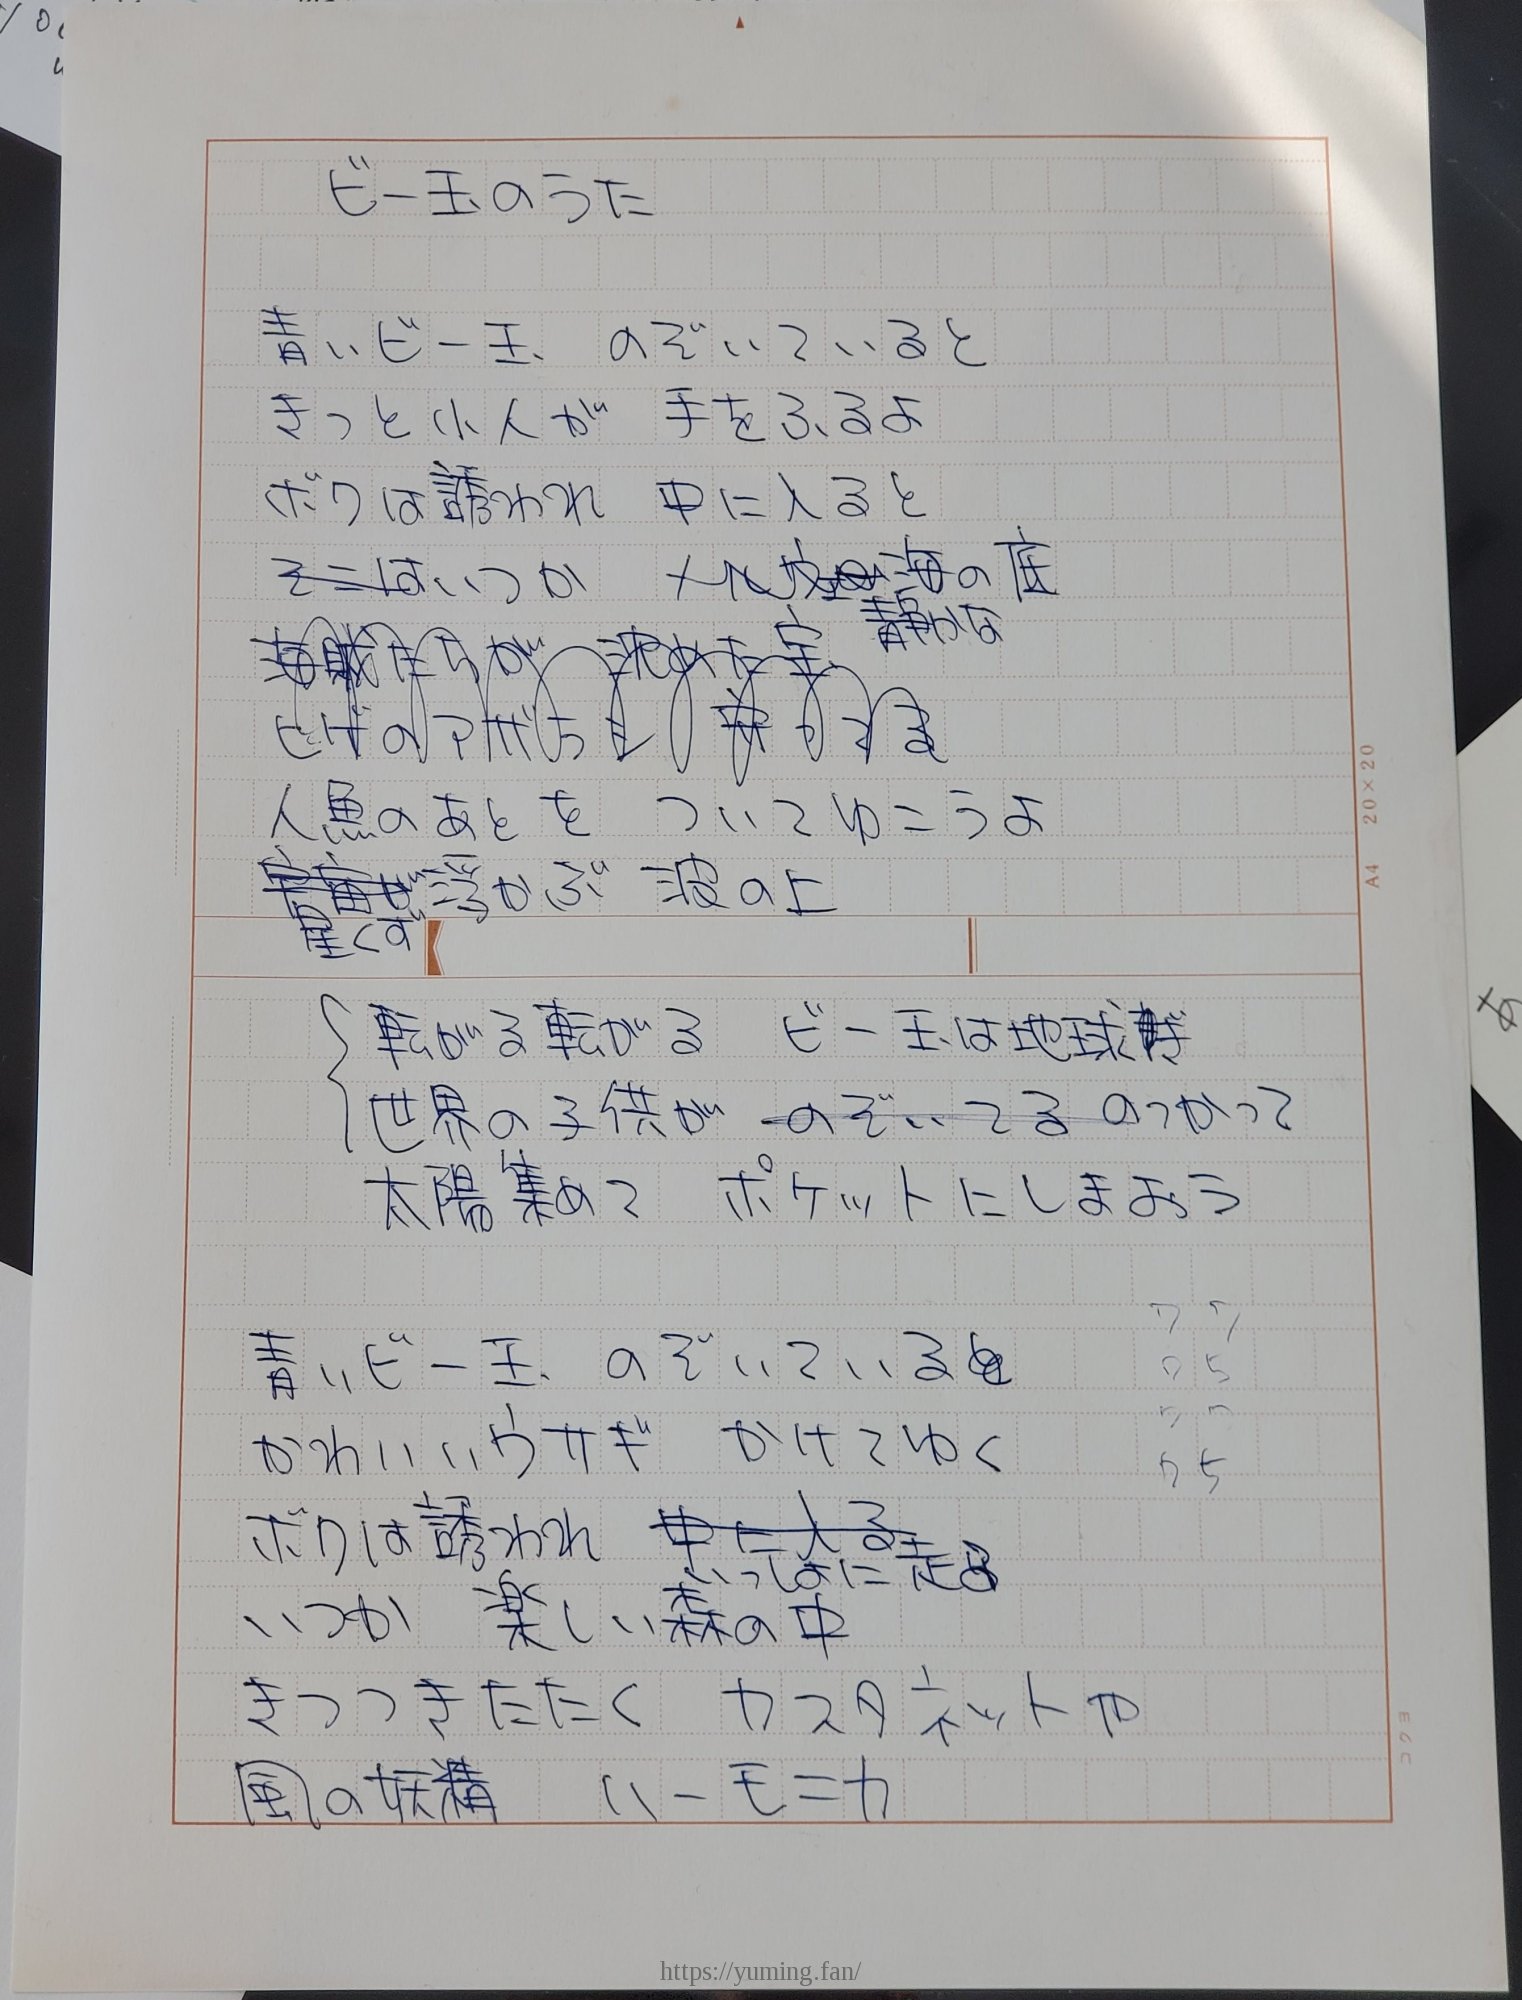 ビー玉のうた
青いビー玉 のぞいていると
きっと小人が 手をふるよ
ボクは誘われ 中に入ると
そこはいつか 海の底
静かな
海賊たちが 沈めた宝
ひげのアザラシ 昼ねする
人魚のあとを ついてゆこうよ
宇宙が浮かぶ 波の上
星くずが
転がる転がる ビー玉は地球
世界の子供が のぞいてる のっかって
太陽集めて ポケットにしまおう
7 7
青いビー玉 のぞいていると
7 5
かわいいウサギ かけてゆく
7 5
ボクは誘われ 中に入る
いっしょに走る
いつか 楽しい森の中
きつつきたたく カスタネットや
風の妖精 ハーモニカ
A4 20×20
コクヨ
あ
https://yuming.fan/